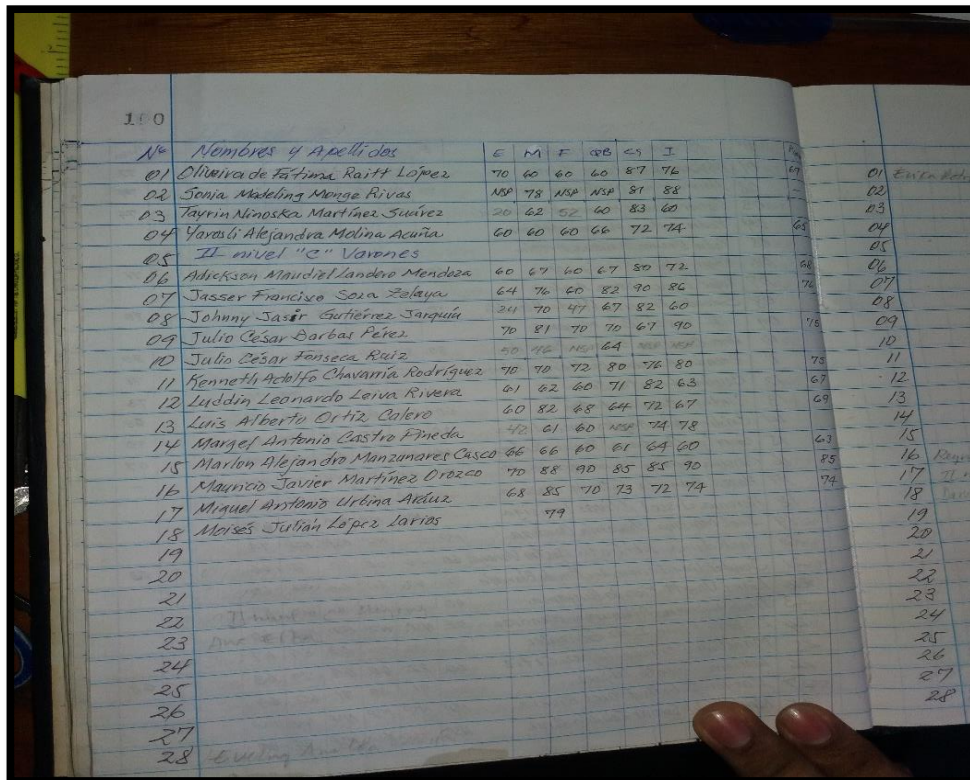 100
Nº Nombres y Apellidos E M F QB CS I
01 Oliveira de Fátima Raitt López 70 60 60 60 87 76 69
02 Sonia Madeling Monge Rivas NSP 78 NSP NSP 81 88
03 Tayrin Ninoska Martínez Suárez 20 62 52 60 83 60
04 Yarosli Alejandra Molina Acuña 60 60 60 66 72 74 65
05 II nivel "C" Varones
06 Adickson Maudiel Landero Mendoza 60 67 60 67 80 72 68
07 Jasser Francisco Soza Zelaya 64 76 60 82 90 86 76
08 Johnny Jasir Gutiérrez Jarquín 70 47 67 82 60
09 Julio César Barbas Pérez 70 81 70 70 67 90 75
10 Julio César Fonseca Ruiz 50 46 NSP 64 NSP NSP
11 Kenneth Adolfo Chavarría Rodríguez 70 70 72 80 76 80 75
12 Luddin Leonardo Leiva Rivera 61 62 60 71 82 63 67
13 Luis Alberto Ortiz Calero 60 82 68 64 72 67 69
14 Margel Antonio Castro Pineda 42 61 60 NSP 74 78
15 Marlon Alejandro Manzanares Casco 66 66 60 61 64 60 63
16 Mauricio Javier Martínez Orozco 70 88 90 85 85 90 85
17 Miguel Antonio Urbina Aráuz 68 85 70 73 72 74 74
18 Moisés Julián López Larios 79
19
20
21
22
23
24
25
26
27
28
01
02
03
04
05
06
07
08
09
10
11
12
13
14
15
16
17
18
19
20
21
22
23
24
25
26
27
28